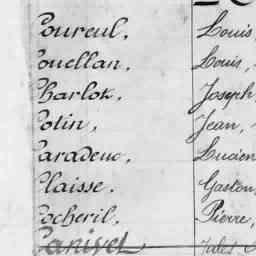 Coureul, Louis
Couellan, Louis,
Charlot, Joseph,
Cotin, Jean,
Caradeuc, Lucien
Claisse, Gaston,
Cocheril, Pierre,
Canivet Jules